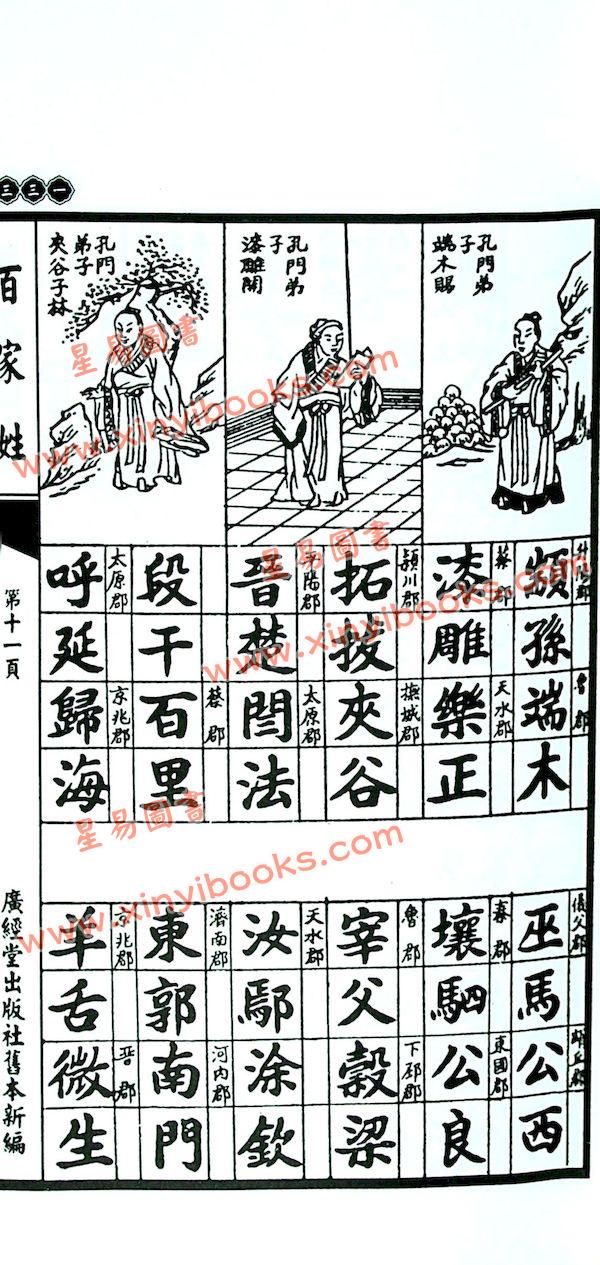 一三三
孔門弟
子
端木賜
孔門弟
子
漆雕開
孔門
弟子
夾谷子林
魯郡
顓孫端木
蔡郡 天水郡
漆雕樂正
潁川郡 撫城郡
拓拔夾谷
平陽郡 太原郡
晉楚閆法
蔡郡
段干百里
太原郡 京兆郡
呼延歸海
巫馬公西
秦郡 東國郡
壤駟公良
魯郡 下邳郡
宰父穀梁
天水郡
汝鄢涂欽
濟南郡 河內郡
東郭南門
京兆郡 晉郡
羊舌微生
百家姓
第十一頁
廣經堂出版社舊本新編
星易圖書
www.xinyibooks.com
星易圖書
www.xinyibooks.com
星易圖書
www.xinyibooks.com